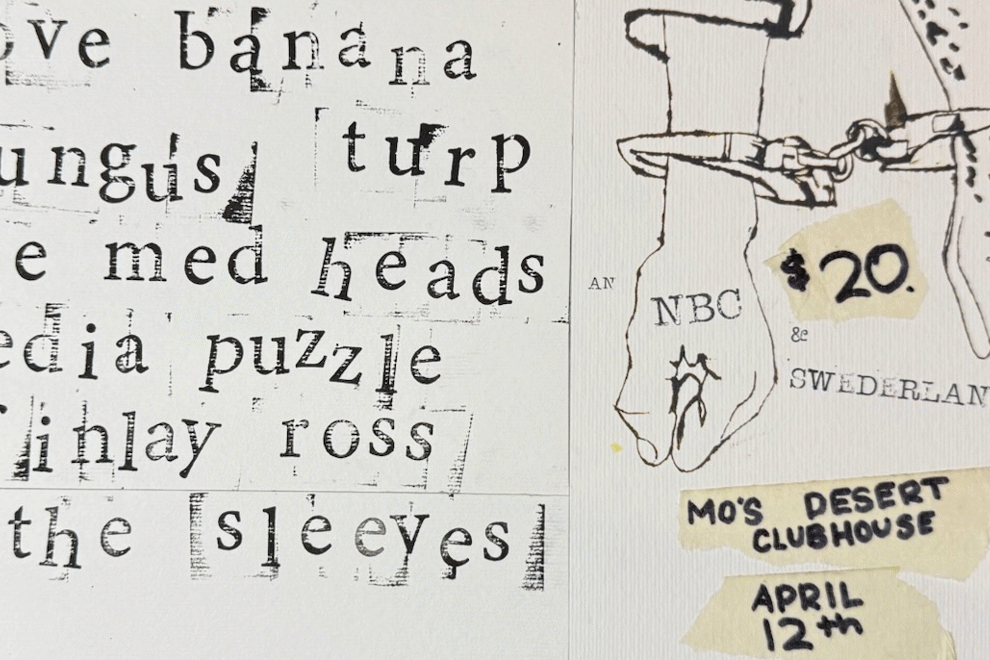 ove banana
ungus turp
e med heads
edia puzzle
finlay ross
the sleeves
$20.
AN
NBC
&
SWEDERLAN
MO'S DESERT
CLUBHOUSE
APRIL
12th